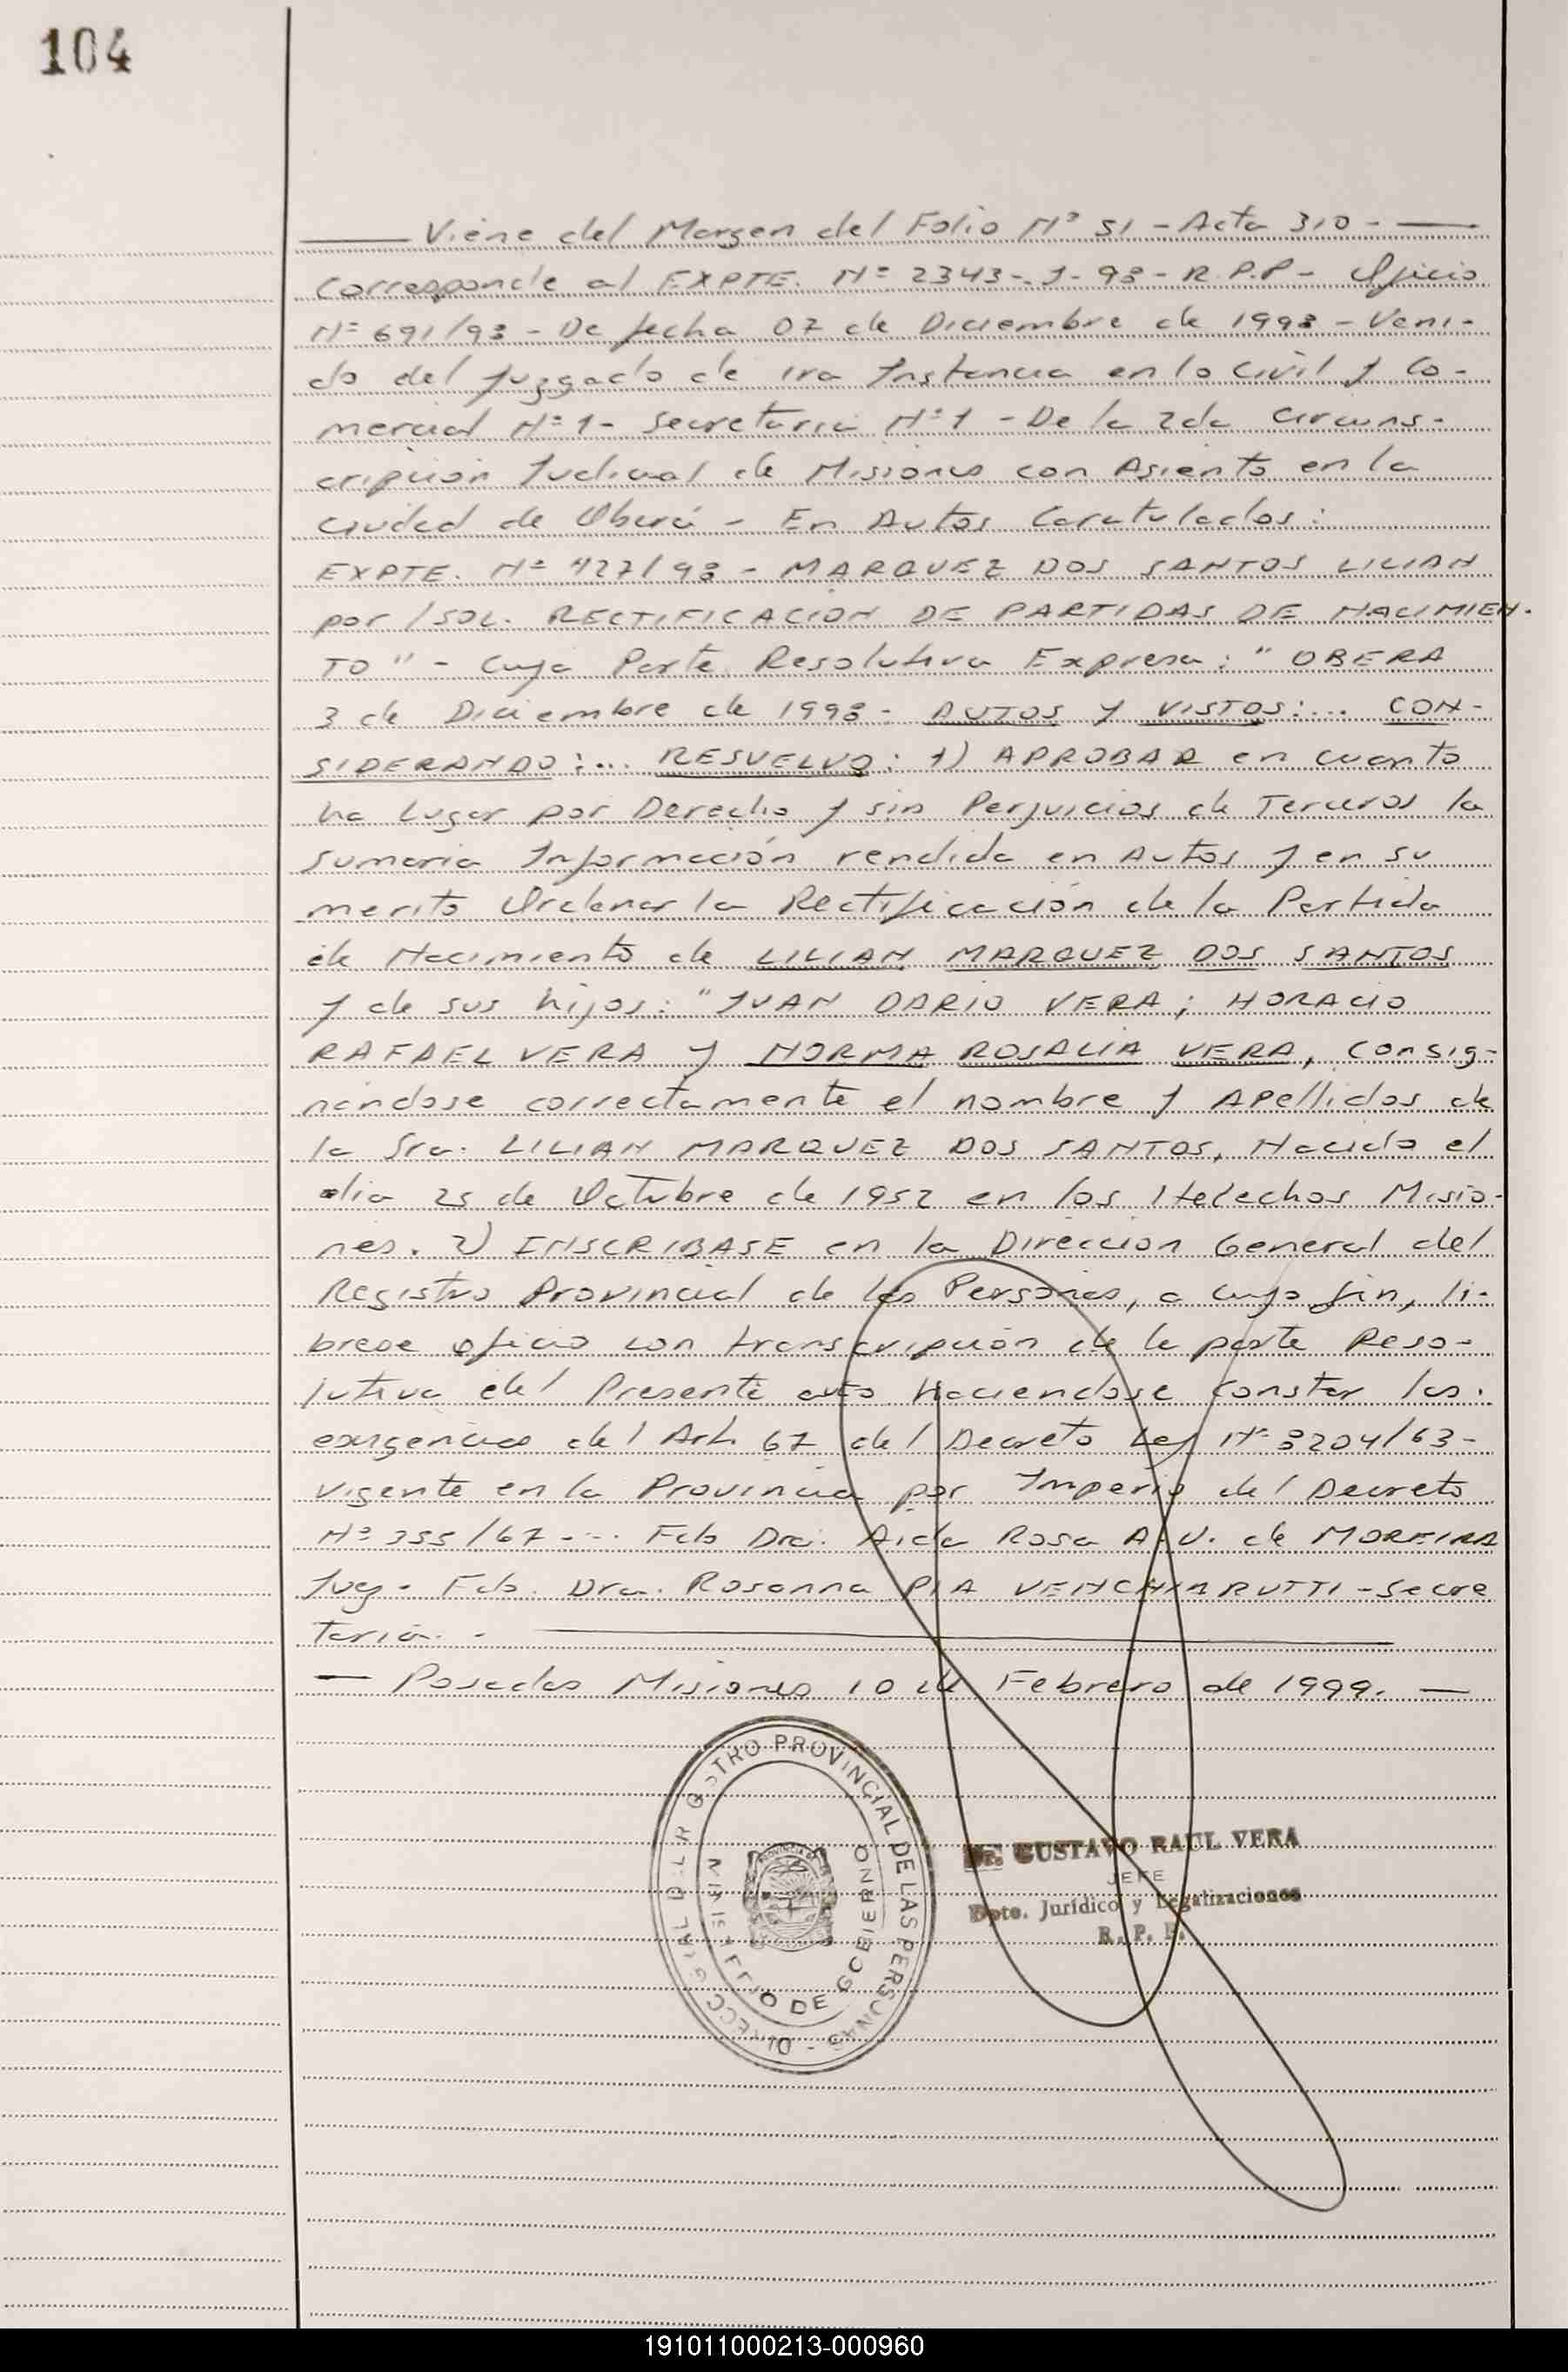 104
Viene del Margen del Folio Nº 51 - Acta 310 -
Corresponde al EXPTE. Nº 2343- J- 98 - R.P.P - Oficio
Nº 691/98 - De fecha 07 de Diciembre de 1998 - Veni-
do del Juzgado de 1ra Instancia en lo Civil y Co-
mercial Nº 1 - Secretaria Nº 1 - De la 2da Circuns-
cripción Judicial de Misiones con Asiento en la
Ciudad de Oberá - En Autos Caratulados:
EXPTE. Nº 427/98 - MARQUEZ DOS SANTOS LILIAN
por / SOL. RECTIFICACION DE PARTIDAS DE NACIMIEN-
TO" - Cuya Parte Resolutiva Expresa: " OBERA
3 de Diciembre de 1998 - AUTOS Y VISTOS:... CON-
SIDERANDO:... RESUELVO: 1) APROBAR en cuanto
ha Lugar por Derecho y sin Perjuicios de Terceros la
Sumaria Información rendida en Autos y en su
merito Ordenar la Rectificación de la Partida
de Nacimiento de LILIAN MARQUEZ DOS SANTOS
y de sus hijos: "JUAN DARIO VERA; HORACIO
RAFAEL VERA y NORMA ROSALIA VERA, Consig-
nándose correctamente el nombre y Apellidos de
la Sra. LILIAN MARQUEZ DOS SANTOS, Nacida el
dia 25 de Octubre de 1952 en los Helechos Misio-
nes. 2) INSCRIBASE en la Dirección General del
Registro Provincial de las Personas, a cuyo fin, li-
brese oficio con transcripción de la parte Reso-
lutiva del Presente auto Haciendose constar las
exigencias del Art. 67 del Decreto Ley Nº 8204/63 -
vigente en la Provincia por Imperio del Decreto
Nº 355/67 - ... Fdo Dra. Aida Rosa A. U. de MOREIRA
Juez - Fdo. Dra. Rosanna PIA VENCHIARUTTI - Secre
taria. -
— Posadas Misiones 10 de Febrero de 1999. —
GISTRO PROVINCIAL DE LAS PERSONAS - DIRECC
MINISTERIO DE GOBIERNO
Dr. GUSTAVO RAUL VERA
JEFE
Dpto. Jurídico y Legalizaciones
R. P. P.
191011000213-000960